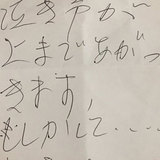 泣き声が、
とまであがっ
きます，
もしかして・・・・